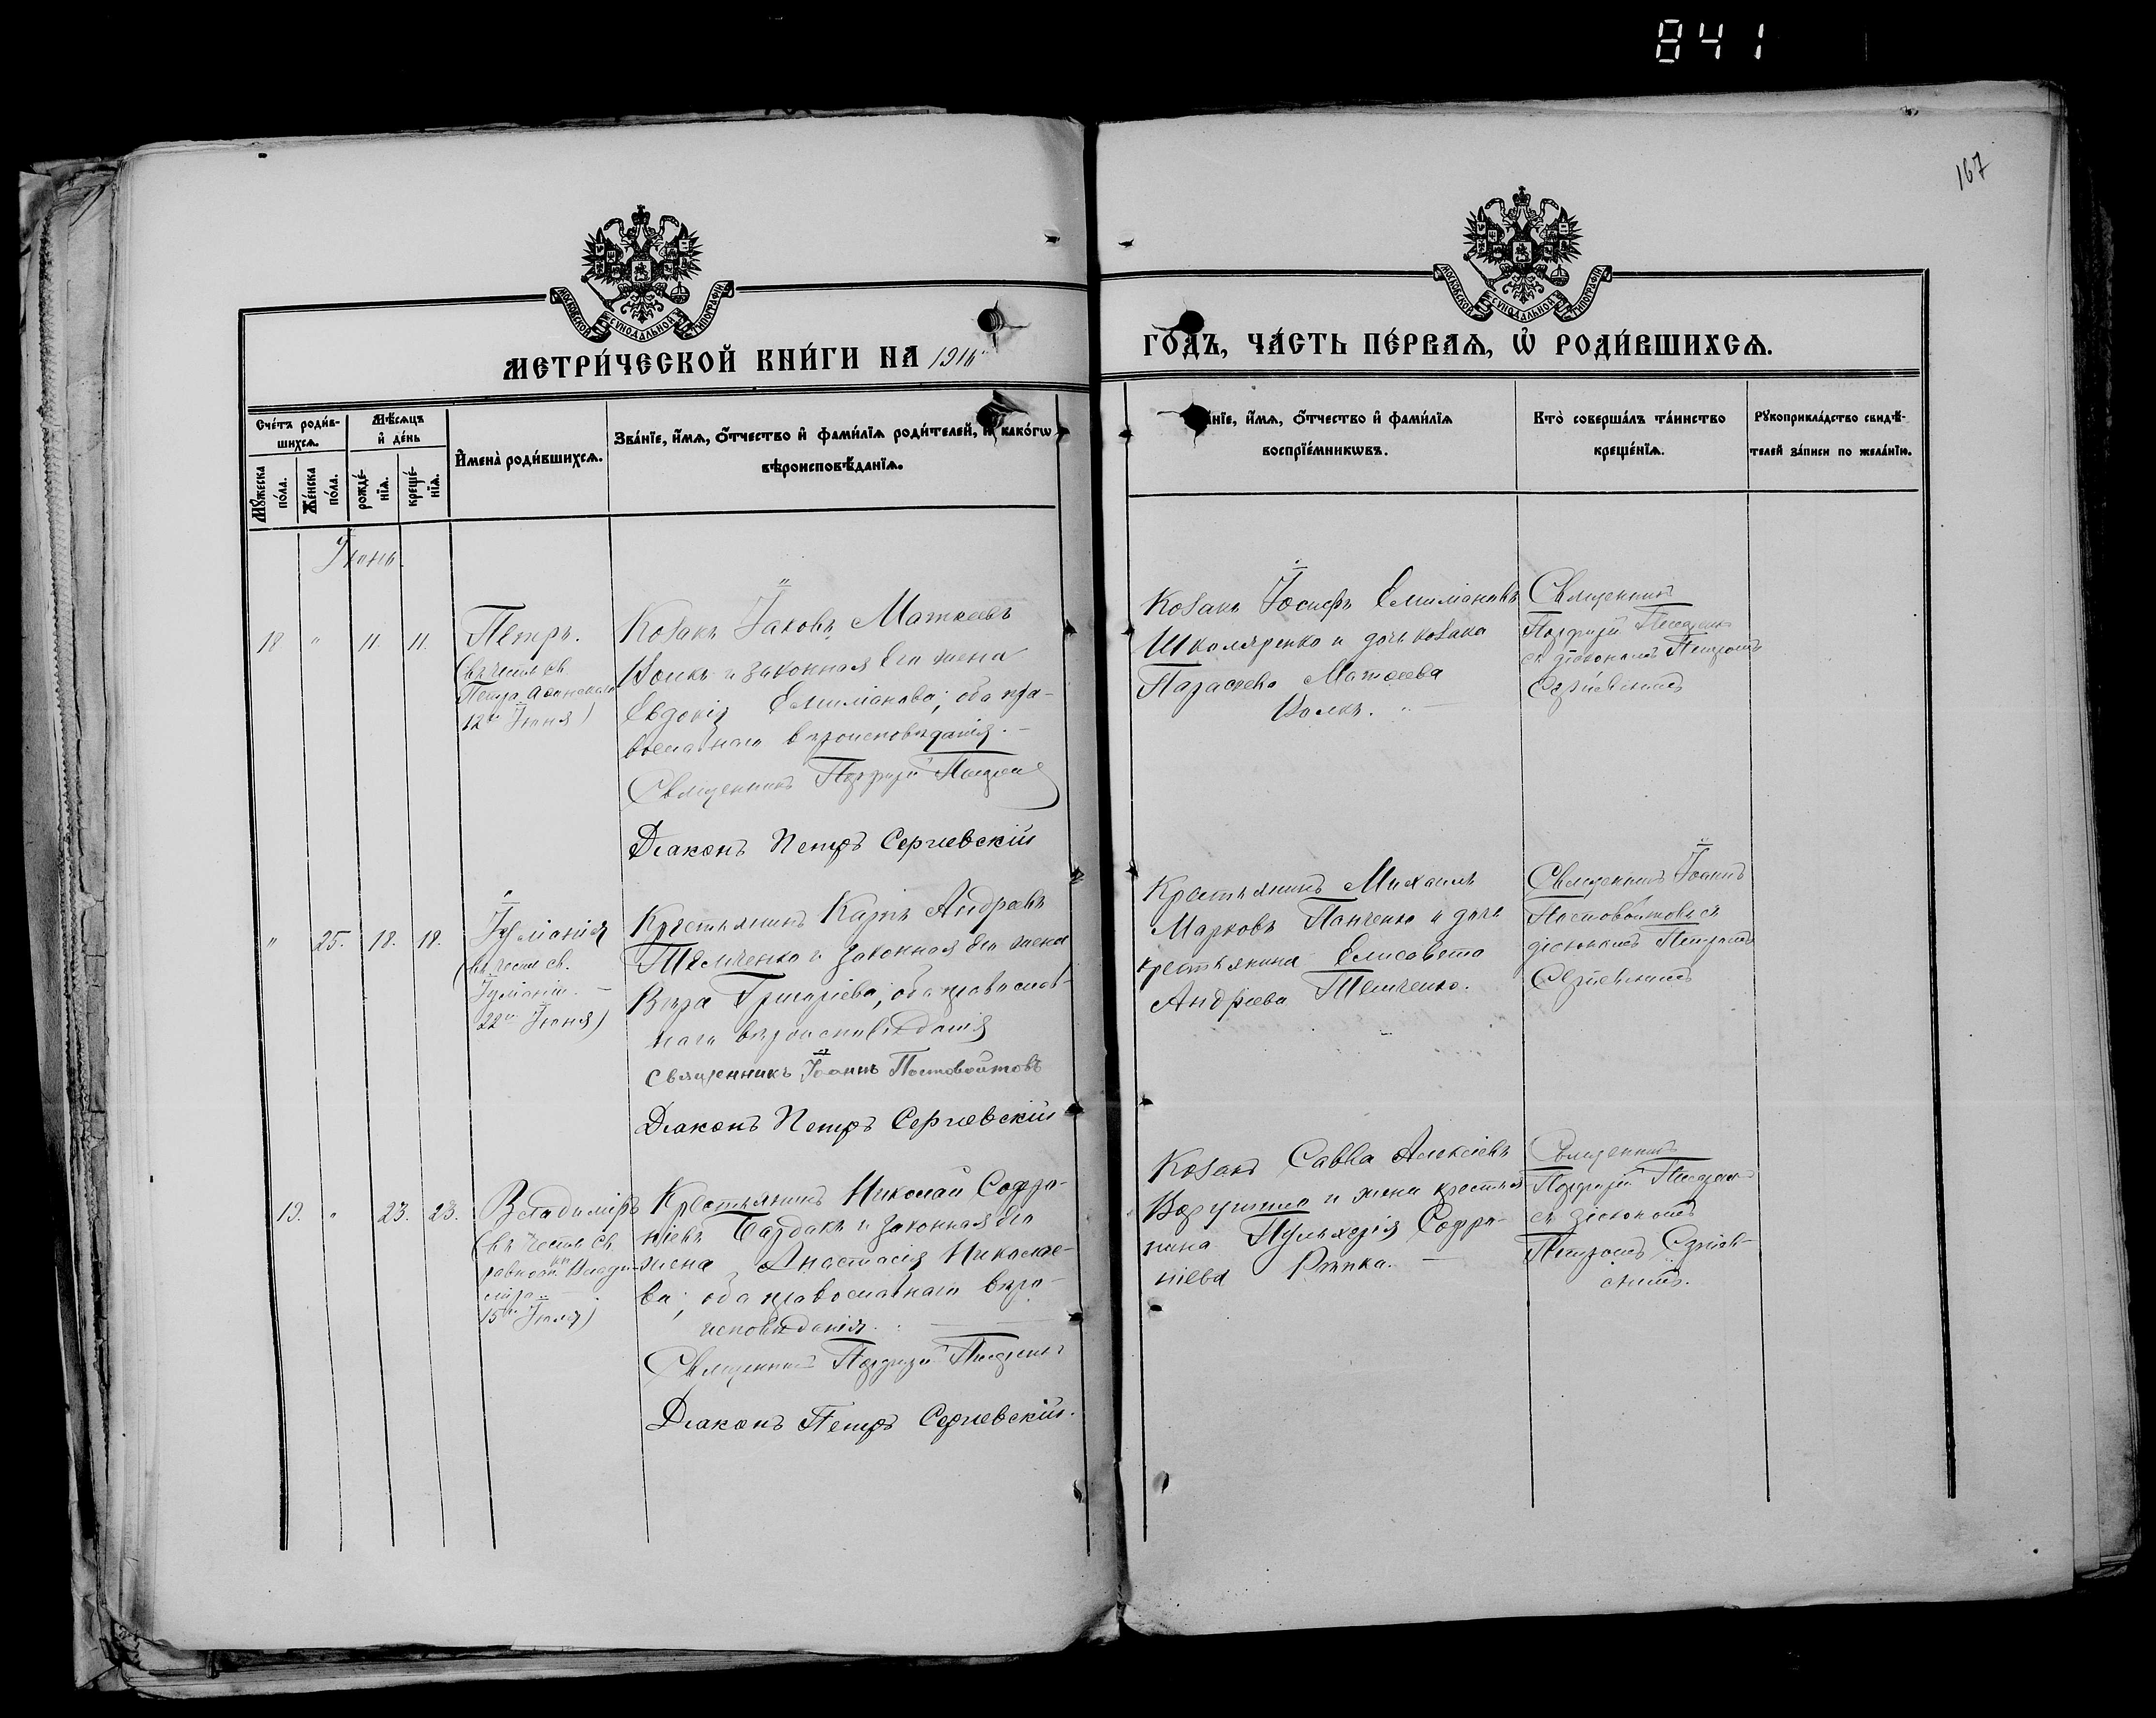 841
167
МОСКОВСКОЙ СѴНОДАЛЬНОЙ ТИПОГРАФІИ
МОСКОВСКОЙ СѴНОДАЛЬНОЙ ТИПОГРАФІИ
МЕТРИ́ЧЕСКОЙ КНИ́ГИ НА 1914
ГО́ДЪ, ЧА́СТЬ ПЕ́РВАЯ, Ѡ҆ РОДИ́ВШИХСЯ.
Сче́тъ роди́в-
шихся.
Мѣ́сяцъ
и҆ де́нь
Мꙋ́жеска
по́ла.
Же́нска
по́ла.
рожде́-
нїя.
креще́-
нїя.
И҆мена̀ роди́вшихся.
Зва́нїе, и҆́мя, о҆́тчество и҆ фами́лїя роди́телей, и҆ како́гѡ
вѣроисповѣ́данїя.
нїе, и҆́мя, о҆́тчество и҆ фами́лїя
воспрїе́мникѡвъ.
Кто̀ соверша́лъ та́инство
креще́нїя.
Рꙋкоприкла́дство свидѣ́-
телей за́писи по жела́нїю.
Іюнь.
18 " 11. 11.
Петръ.
(въ честь св.
Петра Аѳонскаго
12го Іюня)
Козакъ Іаковъ Матѳеевъ
Волкъ и законная его жена
Евдокія Емиліанова; оба пра-
вославнаго вѣроисповѣданія.
Священникъ Порфирій
Діаконъ Петръ Сергіевскій
Козакъ Іосифъ Емиліановъ
Школяренко и дочь козака
Параскева Матѳеева
Волкъ.
Священникъ
Порфирій
съ діакономъ Петромъ
Сергіевскимъ
" 25. 18. 18.
Іуліанія
(въ честь св.
Іуліаніи.
22го Іюня)
Крестьянинъ Карпъ Андреевъ
Темченко и законная его жена
Вѣра Григоріева; оба православ-
наго вѣроисповѣданія
Священникъ Іоаннъ Постовойтовъ
Діаконъ Петръ Сергіевскій
Крестьянинъ Михаилъ
Марковъ Панченко и дочь
крестьянина Елисавета
Андреева Темченко.
Священникъ Іоаннъ
Постовойтовъ съ
діакономъ Петромъ
Сергіевскимъ
19. " 23. 23.
Владиміръ
(въ честь св.
равноап. кн. Влади-
міра
15го Іюля)
Крестьянинъ Николай Софро-
ніевъ Бардакъ и законная его
жена Анастасія Николае-
ва; оба православнаго вѣро-
исповѣданія.
Священникъ Порфирій
Діаконъ Петръ Сергіевскій.
Козакъ Савва Алексіевъ
и жена крестья-
нина Пульхерія Софро-
ніева Рѣпка.
Священникъ
Порфирій
съ діакономъ
Петромъ Сергіев-
скимъ.